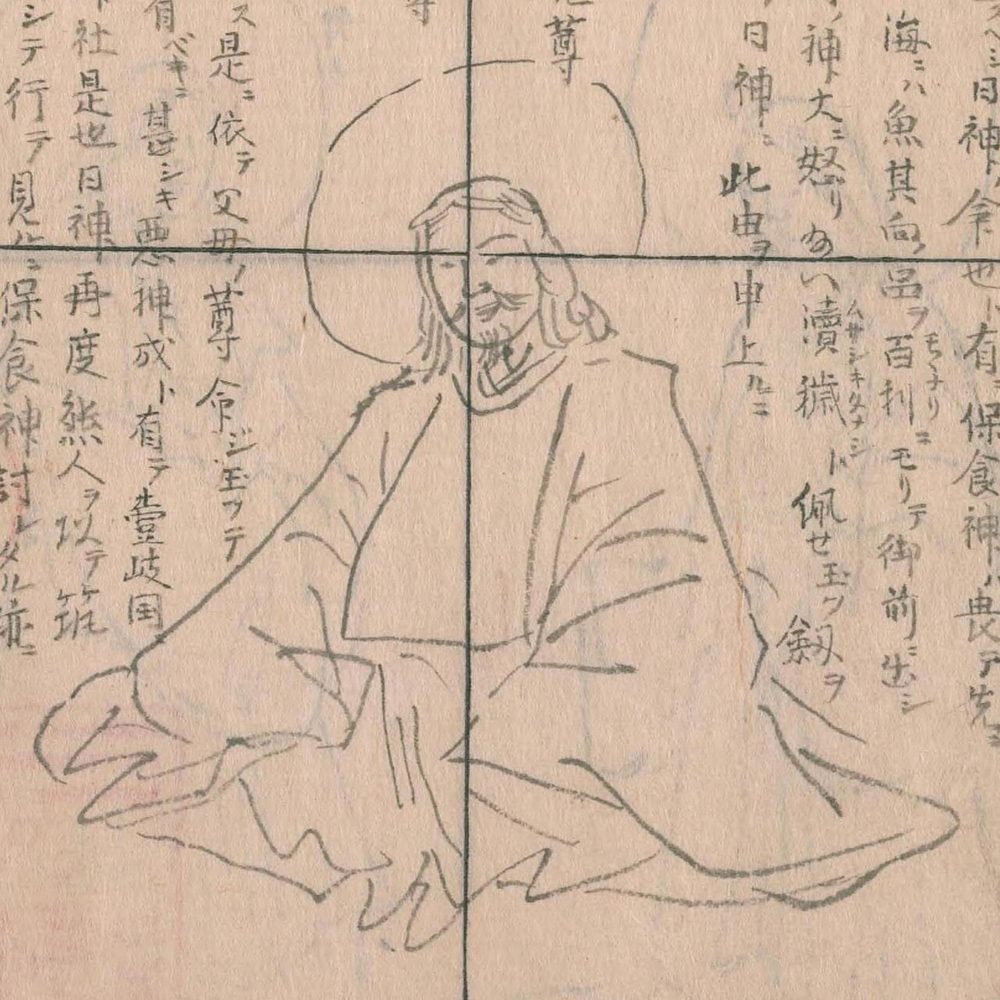 ベシ日神ノ命也ト有ニ保食神ハ畏テ先ニ
海ニハ魚其向ノ邑ヲ百利ニモリテ御前ニ出シ
モヽトリ
神大ニ怒リ給ハ瀆穢ト佩セ玉フ釼ヲ
日神ニ此由ヲ申上ルニ
尊
ス是ニ依テ父母ノ尊命ジ玉フテ
有ベキニ甚シキ悪神成ト有テ壹岐国
社是也日神再度熊人ヲ以テ筑
シテ行テ見ルニ保食神討レタル跡ニ